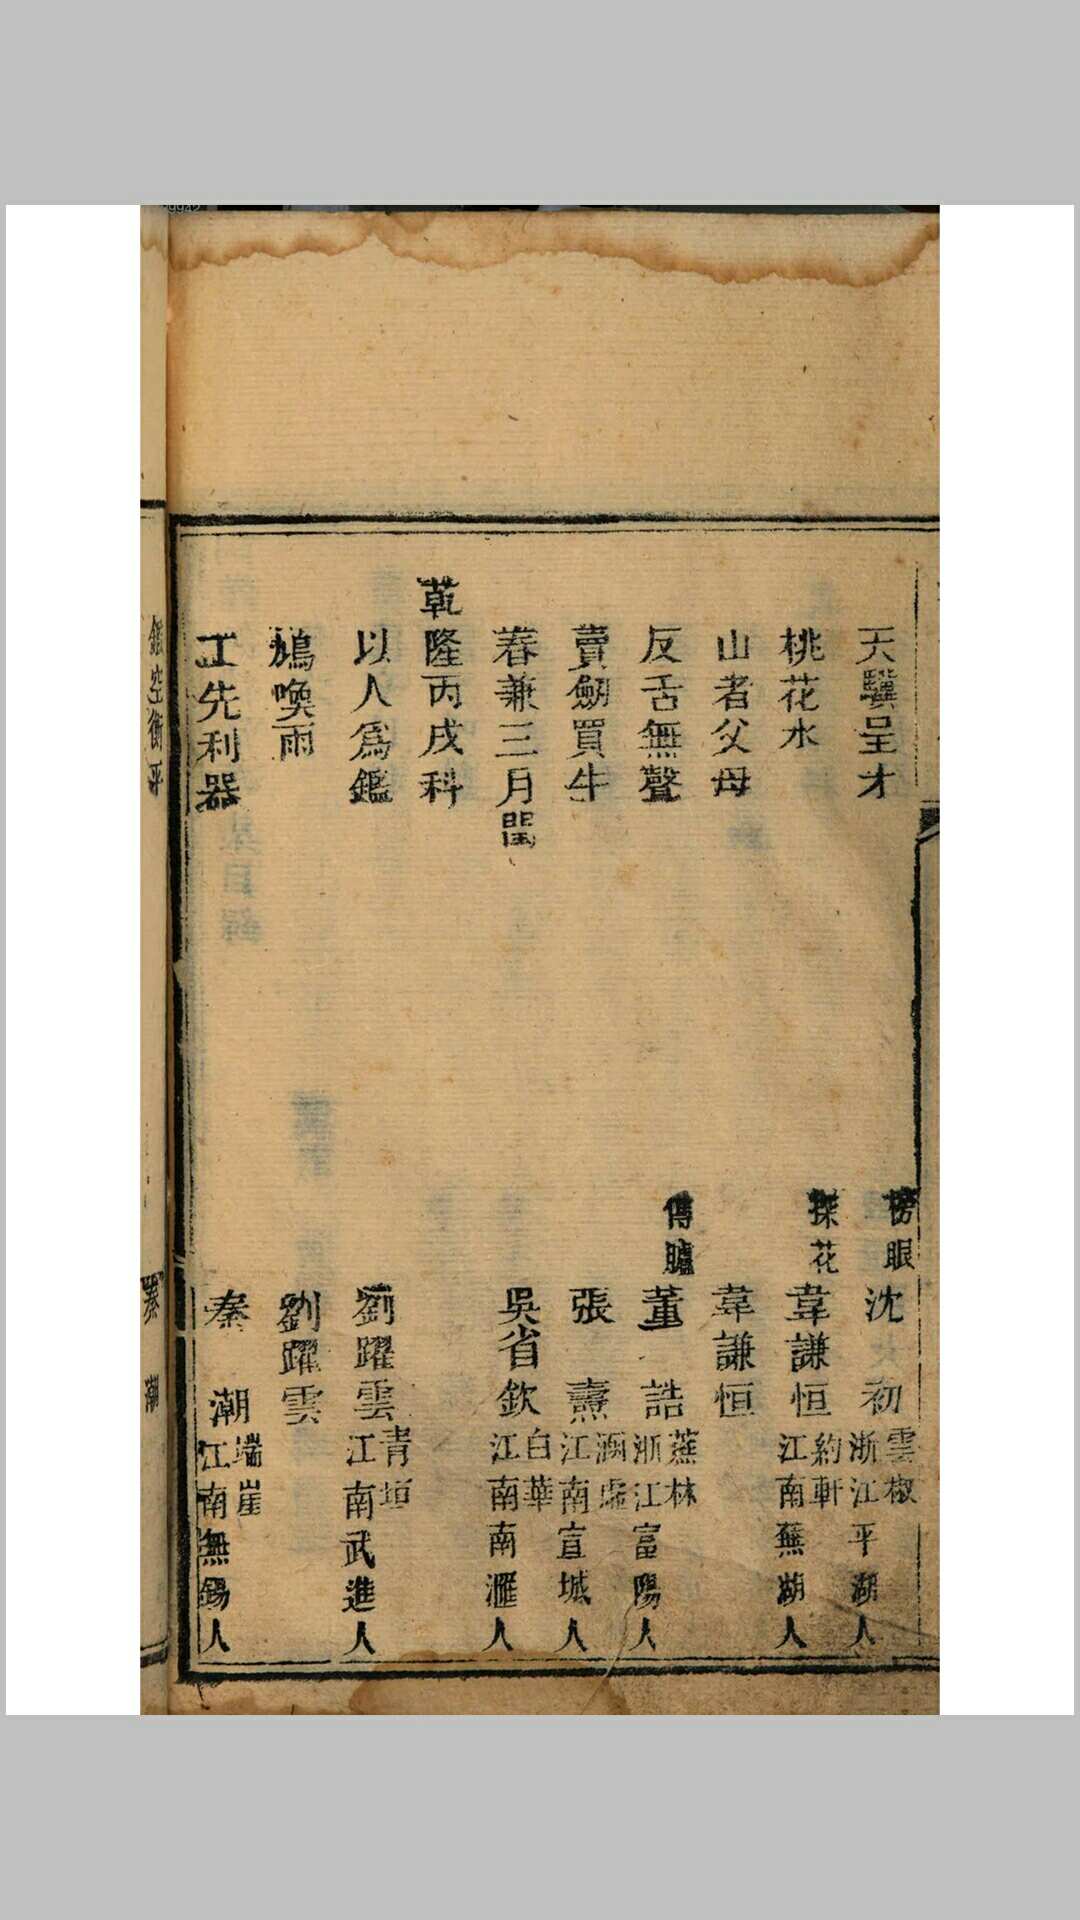 天驥呈才 榜眼 沈初 雲椒 浙江平湖人
桃花水 探花 韋謙恒 約軒 江南蕪湖人
山者父母 韋謙恒
反舌無聲 傳臚 董誥 蔗林 浙江富陽人
賣劒買牛 張燾 江南宣城人
春兼三月閏 吳省欽 白華 江南南滙人
乾隆丙戌科
以人爲鑑 劉躍雲 青垣 江南武進人
鳩喚雨 劉躍雲
工先利器 秦潮 端崖 江南無錫人
鑑空衡平 秦潮